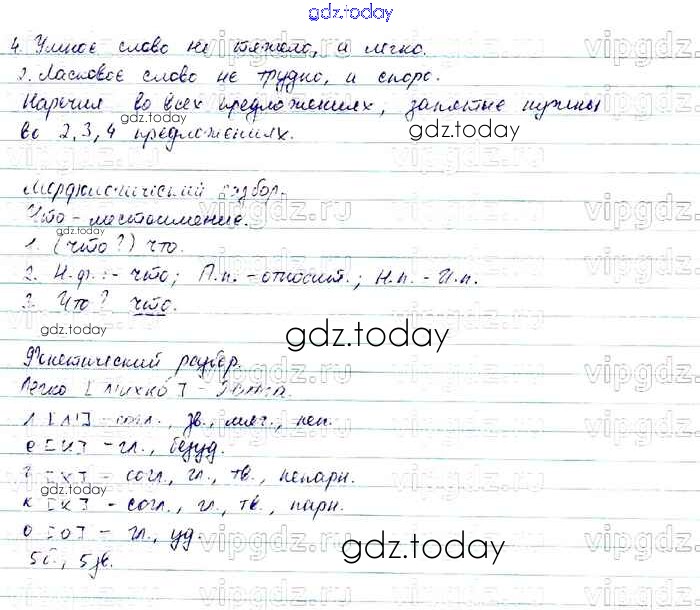 gdz.today
4. Умное слово не тяжело, а легко.
2. Ласковое слово не трудно, и споро.
Наречия во всех предложениях, запятые нужны
gdz.today
во 2, 3, 4 предложениях.
gdz.today
Морфологический разбор.
Что - местоимение.
gdz.today
1. (что?) что.
2. Н.ф.: - что; П.п. - относит.; Н.п. - И.п.
3. Что? что.
gdz.today
gdz.today
Фонетический разбор.
Легко [л'ихко́] -
л [л'] - согл., зв., мяг., неп.
е [и] - гл., безуд.
г [х] - согл., гл., тв., непарн.
gdz.today
к [к] - согл., гл., тв., парн.
о [о] - гл., уд.
gdz.today
5б., 5зв.
vipgdz.ru